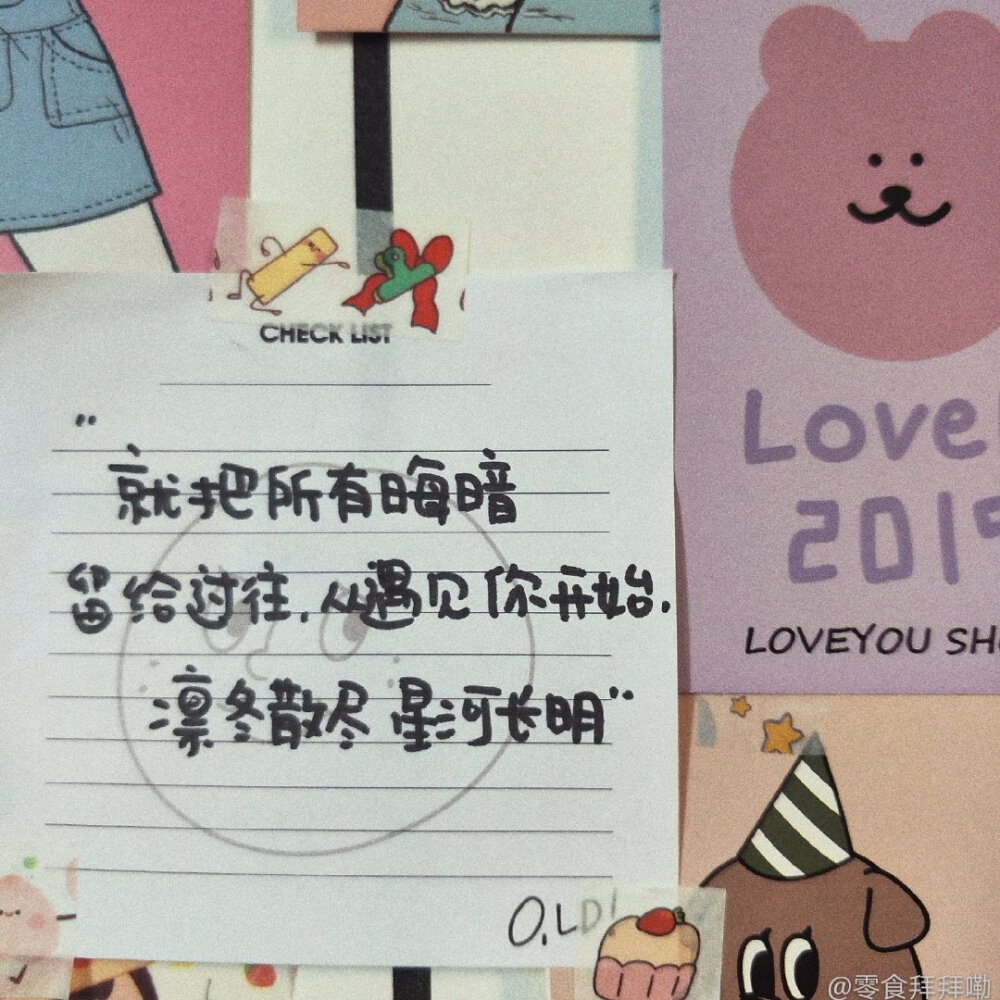 CHECK LIST
"
就把所有晦暗
留给过往，从遇见你开始.
凛冬散尽 星河长明"
Love
201
LOVEYOU SH
@零食拜拜嘞